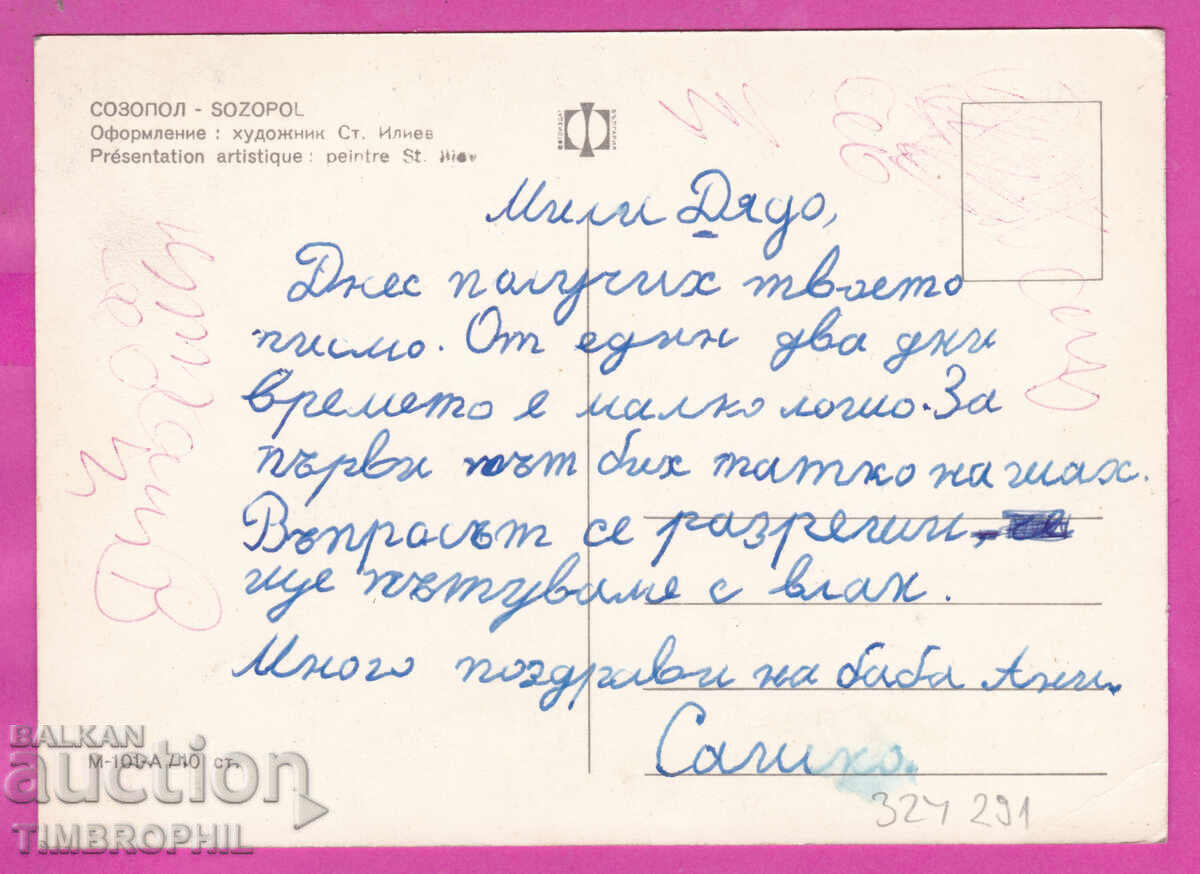 СОЗОПОЛ - SOZOPOL
Оформление : художник Ст. Илиев
Présentation artistique : peintre St. Iliev
Мили Дядо,
Днес получих твоето
писмо. От един два дни
времето е малко лошо. За
първи път бих татко на шах.
Въпросът се разреши,
ще пътуваме с влак.
Много поздрави на баба Ани.
Сашко.
324 291
М-101-А / 10 ст.
BALKAN
auction
TIMBROPHIL